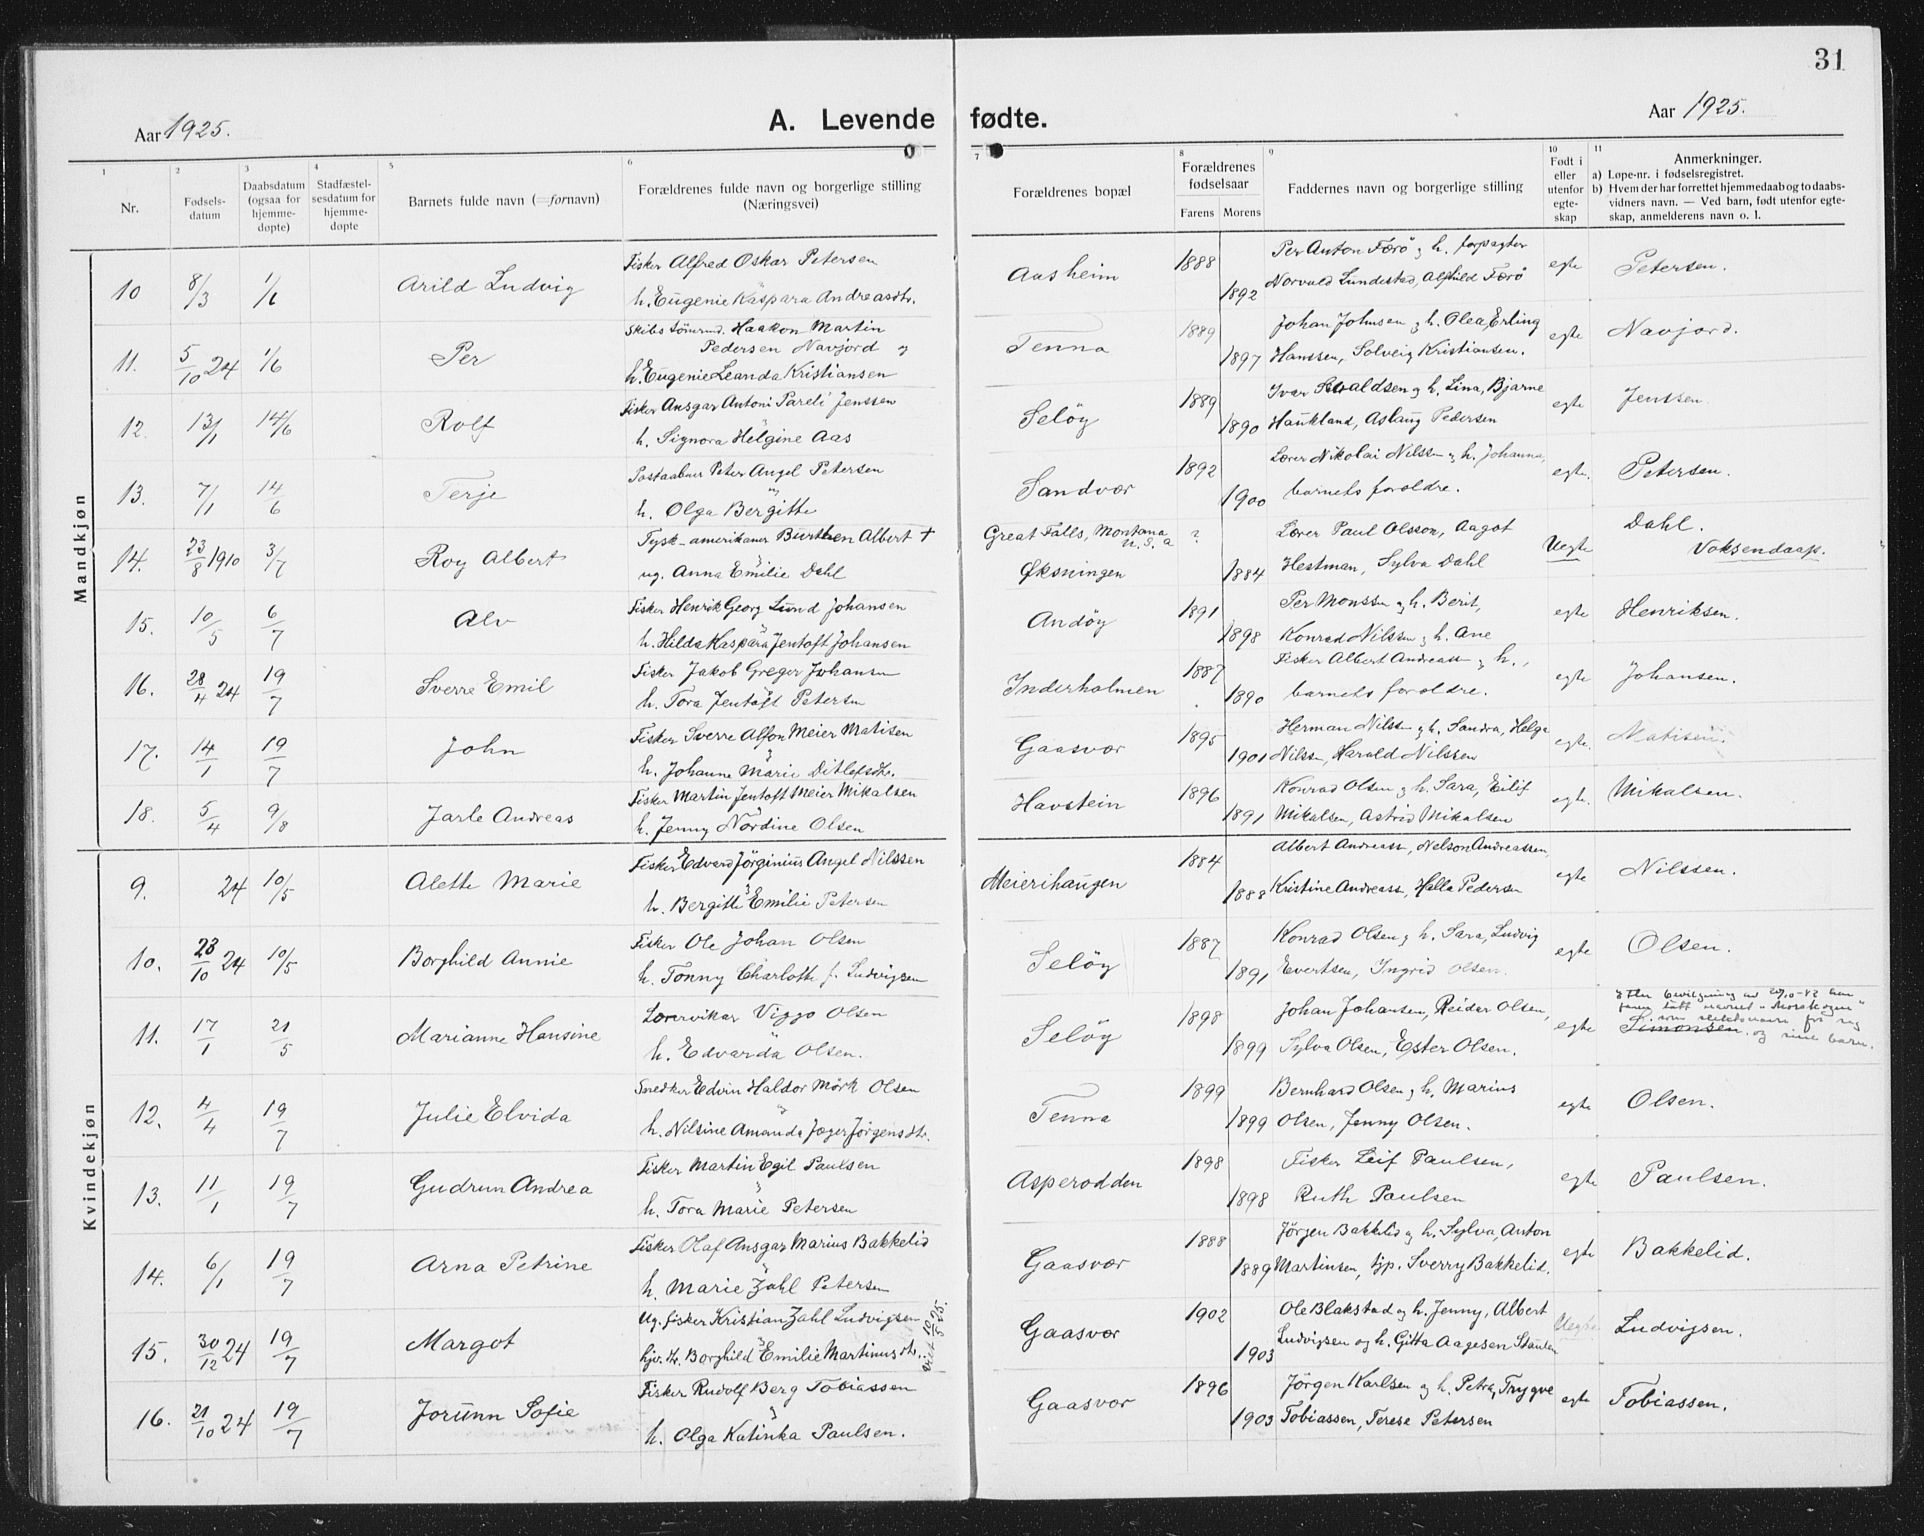 31
Aar 1925.
A. Levende fødte.
Aar 1925.
1 2 3 4 5 6 7 8 9 10 11
Nr.
Fødsels-datum
Daabsdatum (ogsaa for hjemme-døpte)
Stadfæstel-sesdatum for hjemme-døpte
Barnets fulde navn (=fornavn)
Forældrenes fulde navn og borgerlige stilling (Næringsvei)
Forældrenes bopæl
Forældrenes fødselsaar
Farens Morens
Faddernes navn og borgerlige stilling
Født i eller utenfor egte-skap
Anmerkninger.
a) Løpe-nr. i fødselsregistret.
b) Hvem der har forrettet hjemmedaab og to daabs-
vidners navn. — Ved barn, født utenfor egte-
skap, anmelderens navn o. l.
Mandkjøn
10 8/3 1/6 Arild Ludvig Fisker Alfred Oskar Petersen
h. Eugenie Kaspara Andreasdtr. Aasheim 1888 1892 Per Anton Færö og h. forpagter
Norvald Lundestad, Alfhild Færö egte Petersen.
11. 5/10 24 1/6 Per Skibstömrmd. Haakon Martin
Pedersen Navjord og
h. Eugenie Leanda Kristiansen Tenna 1889 1897 Johan Johnsen og h. Olea, Erling
Hanssen, Solveig Kristiansen. egte Navjord.
12. 13/1 14/6 Rolf Fisker Ansgar Antoni Pareli Jenssen
h. Signora Helgine Aas Selöy 1889 1890 Ivar h. Lina, Bjarne
Haukland, Aslaug Pedersen egte Jenssen.
13. 7/1 14/6 Terje Postaabner Peter Angel Petersen
og
h. Olga Bergitte Sandvær 1892 1900 Lærer Nikolai Nilssen og h. Johanna,
barnets forældre. egte. Petersen.
14. 23/8 1910 3/7 Roy Albert Tysk-amerikaner Burthen Albert +
ug. Anna Emilie Dahl Great Falls, Montana
U.S.A
Øksningen ? 1884 Lærer Paul Olsson, Aagot
Hestman, Sylva Dahl Uegte Dahl.
Voksendaap.
15. 10/5 6/7 Alv Fisker Henrik Georg Lund Johansen
h. Hilda Kaspara Jentoft Johansen Andöy 1891 1898 Per Monssen og h. Berit,
Konrad Nilssen og h. Ane egte Henriksen.
16. 28/4 24 19/7 Sverre Emil Fisker Jakob Greger Johansen
h. Tora Jentoft Petersen Inderholmen 1887 1890 Fisker Albert Andreass og h.,
barnets forældre. egte Johansen.
17. 14/1 19/7 John Fisker Sverre Alfon Meier Matisen
h. Johanne Marie Ditlefsdtr. Gaasvær 1895 1901 Herman Nilssen og h. Sandra, Helga
Nilssen, Harald Nilssen egte. Matisen.
18. 5/4 9/8 Jarle Andreas Fisker Martin Jentoft Meier Mikalsen
h. Jenny Nordine Olsen Havstein 1896 1891 Konrad Olsen og h. Sara, Eilif
Mikalsen, Astrid Mikalsen egte. Mikalsen.
Kvindekjøn
9. 24 10/5 Alette Marie Fisker Edvard Jörginius Angel Nilssen
h. Bergitte Emilie Petersen Meierihaugen 1884 1888 Albert Andreass, Nelson Andreassen,
Kristine Andreass, Halla Pedersen egte Nilssen.
10. 28/10 24 10/5 Borghild Annie Fisker Ole Johan Olsen
h. Tonny Charlotte f. Ludvigsen Selöy 1887 1891 Konrad Olsen og h. Sara, Ludvig
Evertsen, Ingrid Olsen. egte Olsen.
11. 17/1 21/5 Marianne Hansine Lærervikar Viggo Olsen
h. Edvarda Olsen. Selöy 1898 1899 Johan Johansen, Reidar Olsen,
Sylva Olsen, Ester Olsen. egte Efter bevilgning av
som slektsnavn for seg
Simonsen. og sine barn.
12. 4/4 19/7 Julie Elvida Snedker Edvin Haldor Mörk Olsen
h. Nilsine Amanda Jæger Jörgensdtr. Tenna 1899 1899 Bernhard Olsen og h, Marius
Olsen, Jenny Olsen. egte Olsen.
13. 11/1 19/7 Gudrun Andrea Fisker Martin Egil Paulsen
h. Tora Marie Petersen Asperodden 1898 1898 Fisker Leif Paulsen,
Ruth Paulsen egte Paulsen.
14. 6/1 19/7 Arna Petrine Fisker Olaf Ansgar Marius Bakkelid
h. Marie Zahl Petersen Gaasvær 1888 1889 Jörgen Bakkelid og h. Sylva, Anton
Martinsen, tjp. Sverry Bakkelid. egte Bakkelid.
15. 30/12 24 19/7 Margot Ug. fisker Kristian Zahl Ludvigsen
hjv. dtr. Borghild Emilie Martinusdtr.
viet 10/5 25. Gaasvær 1902 1903 Ole Blakstad og h. Jenny, Albert
Ludvigsen og h. Gitta Aagesen Uegte Ludvigsen.
16. 21/10 24 19/7 Jorunn Sofie Fisker Rudolf Berg Tobiassen
h. Olga Katinka Paulsen. Gaasvær 1896 1903 Jörgen Karlsen og h. Petra, Trygve
Tobiassen, Terese Petersen egte Tobiassen.